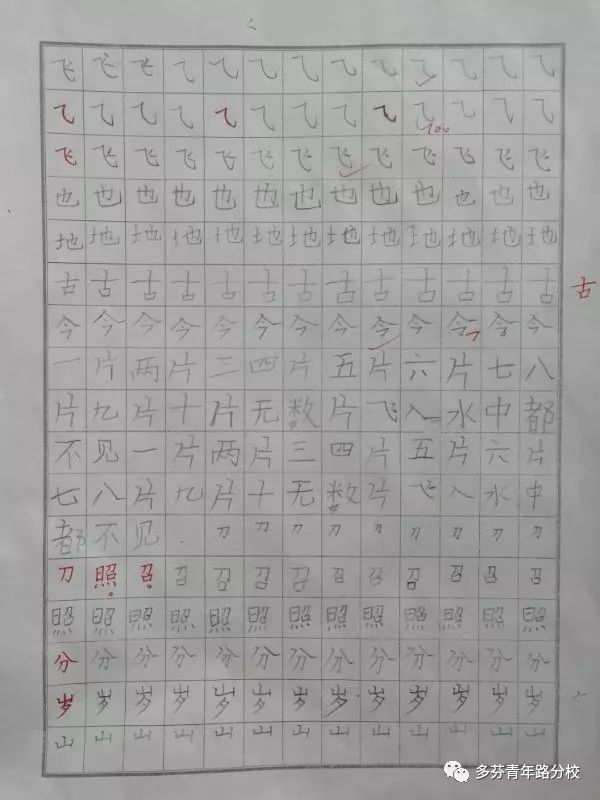 飞飞飞乙乙乙乙乙乙乙乙乙乙
乙乙乙乙乙乙乙乙乙乙乙乙乙
100
飞飞飞飞飞飞飞飞飞飞飞飞飞
也也也也也也也也也也也也也
地地地地地地地地地地地地地
古古古古古古古古古古古古古 古
今今今今今今今今今今今今今
一片两片三四片五片六片七八
片九片十片无数片飞入水中都
不见一片两片三四片五片六片
七八片九片十无数片飞入水中
都不见.刀刀刀刀刀刀刀刀刀
刀照召召召召召召召召召召召
照照照照照照照照照照照照照
分分分分分分分分分分分分分
岁岁岁岁岁岁岁岁岁岁岁岁岁
山山山山山山山山山山山山山
多芬青年路分校